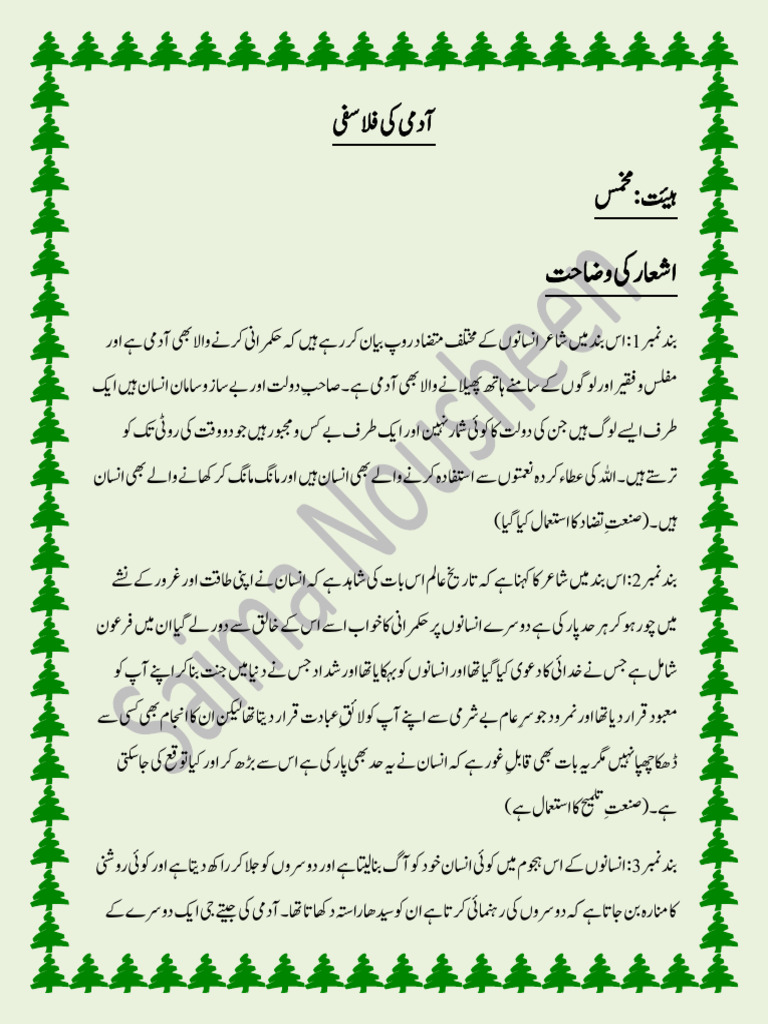 آدمی کی فلاسفی
ہیئت: مخمس
اشعار کی وضاحت
بند نمبر 1: اس بند میں شاعر انسانوں کے مختلف متضاد روپ بیان کر رہے ہیں کہ حکمرانی کرنے والا بھی آدمی ہے اور
مفلس و فقیر اور لوگوں کے سامنے ہاتھ پھیلانے والا بھی آدمی ہے۔ صاحبِ دولت اور بے ساز و سامان انسان ہیں ایک
طرف ایسے لوگ ہیں جن کی دولت کا کوئی شمار نہین اور ایک طرف بے کس و مجبور ہیں جو دو وقت کی روٹی تک کو
ترستے ہیں۔ اللہ کی عطاء کردہ نعمتوں سے استفادہ کرنے والے بھی انسان ہیں اور مانگ مانگ کر کھانے والے بھی انسان
ہیں۔ (صنعتِ تضاد کا استعمال کیا گیا)
بند نمبر 2: اس بند میں شاعر کا کہنا ہے کہ تاریخِ عالم اس بات کی شاہد ہے کہ انسان نے اپنی طاقت اور غرور کے نشے
میں چور ہو کر ہر حد پار کی ہے دوسرے انسانوں پر حکمرانی کا خواب اسے اس کے خالق سے دور لے گیا ان میں فرعون
شامل ہے جس نے خدائی کا دعوی کیا گیا تھا اور انسانوں کو بہکایا تھا اور شداد جس نے دنیا میں جنت بنا کر اپنے آپ کو
معبود قرار دیا تھا اور نمرود جو سرِ عام بے شرمی سے اپنے آپ کو لائقِ عبادت قرار دیتا تھا لیکن ان کا انجام بھی کسی سے
ڈھکا چھپا نہیں مگر یہ بات بھی قابلِ غور ہے کہ انسان نے یہ حد بھی پار کی ہے اس سے بڑھ کر اور کیا توقع کی جا سکتی
ہے۔ (صنعتِ تلمیح کا استعمال ہے)
بند نمبر 3: انسانوں کے اس ہجوم میں کوئی انسان خود کو آگ بنا لیتا ہے اور دوسروں کو جلا کر راکھ دیتا ہے اور کوئی روشنی
کا منارہ بن جاتا ہے کہ دوسروں کی رہنمائی کرتا ہے ان کو سیدھا راستہ دکھاتا تھا۔ آدمی کی جیتے جی ایک دوسرے کے
Saima Nousheen